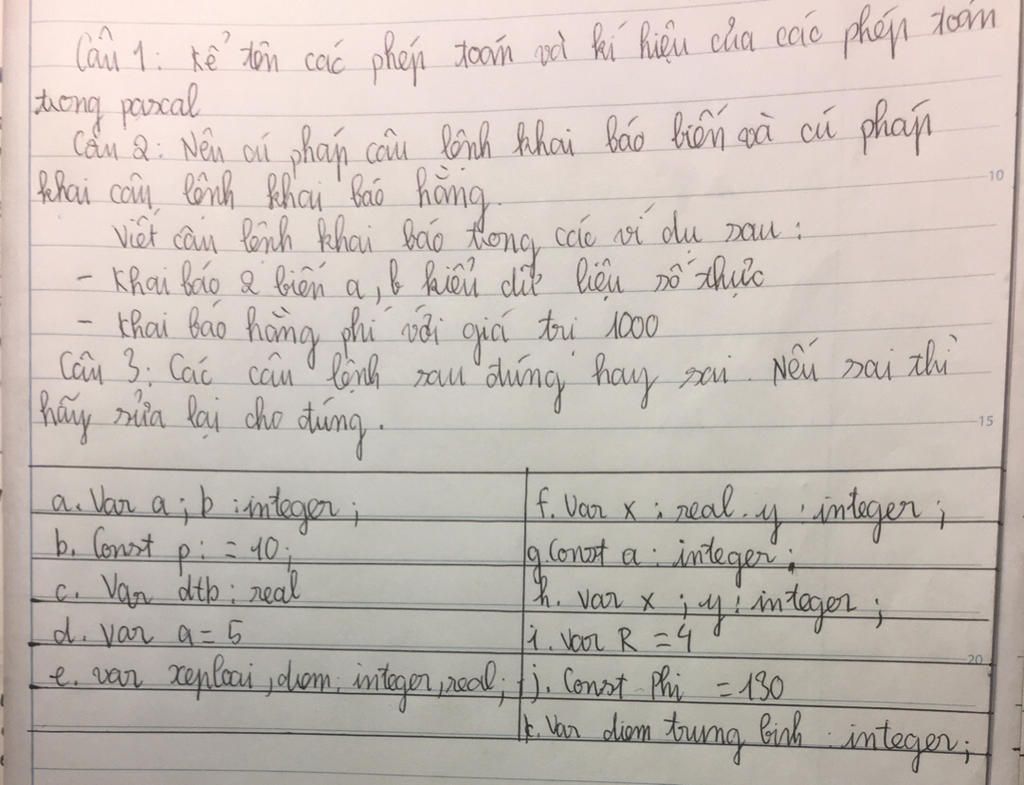 Câu 1: Kể tên các phép toán và kí hiệu của các phép toán
trong pascal
Câu 2: Nêu cú pháp câu lệnh khai báo biến và cú pháp
khai câu lệnh khai báo hằng.
Viết câu lệnh khai báo trong các ví dụ sau:
- Khai báo 2 biến a, b kiểu dữ liệu số thực
- Khai báo hằng phí với giá trị 1000
Câu 3: Các câu lệnh sau đúng hay sai. Nếu sai thì
hãy sửa lại cho đúng.
a. Var a; b: integer;
b. Const pi: = 10;
c. Var dtb: real
d. Var a = 5
e. var xeploai, diem: integer, real;
f. Var x: real. y: integer;
g. Const a: integer;
h. var x; y: integer;
i. Var R = 4
j. Const phi = 130
k. Var diem trung binh: integer;
10
15
20